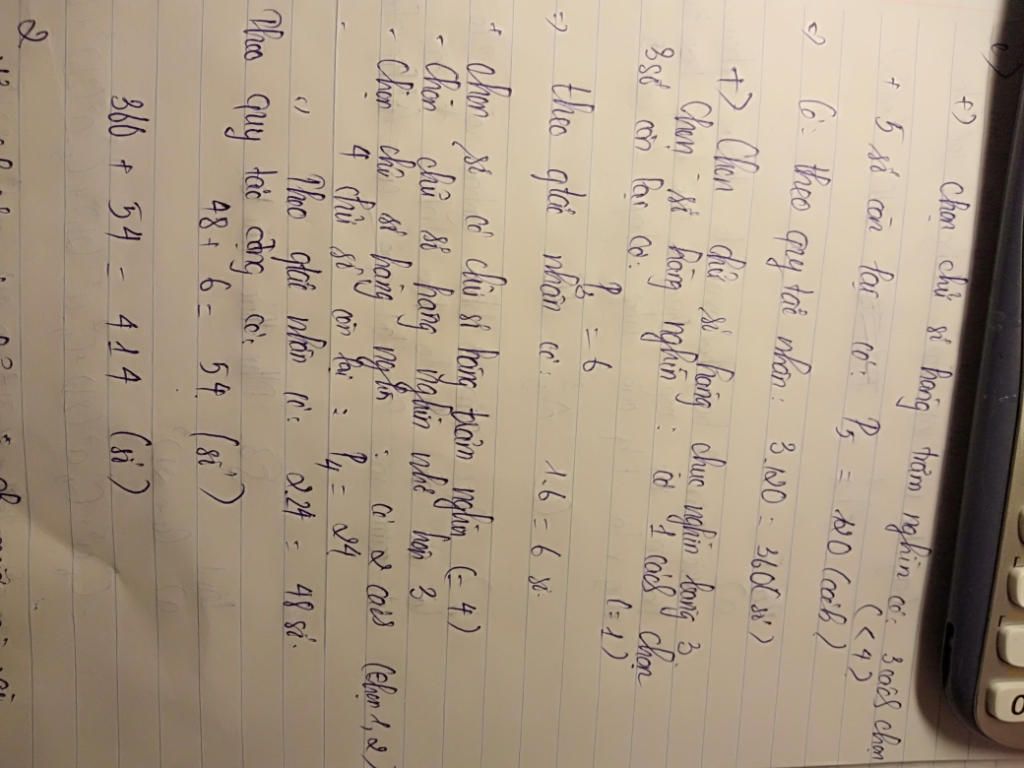 c)
+) chọn chữ số hàng trăm nghìn có: 3 cách chọn
(< 4)
+ 5 số còn lại có: P5 = 120 (cách)
=) Có: theo quy tắc nhân: 3.120 = 360 (số)
+) Chọn chữ số hàng chục nghìn bằng 3
Chọn số hàng nghìn: có 1 cách chọn
(=1)
3 số còn lại có:
P3 = 6
=) theo qtắc nhân có: 1.6 = 6 số
+ chọn số có chữ số hàng trăm nghìn (= 4)
- Chọn chữ số hàng nghìn nhỏ hơn 3
- Chọn chữ số hàng nghìn : có 2 cách (chọn 1, 2)
- 4 chữ số còn lại = P4 = 24
=) Theo qtắc nhân có: 2.24 = 48 số.
Theo quy tắc cộng có:
48 + 6 = 54 (số)
360 + 54 = 414 (số)
2